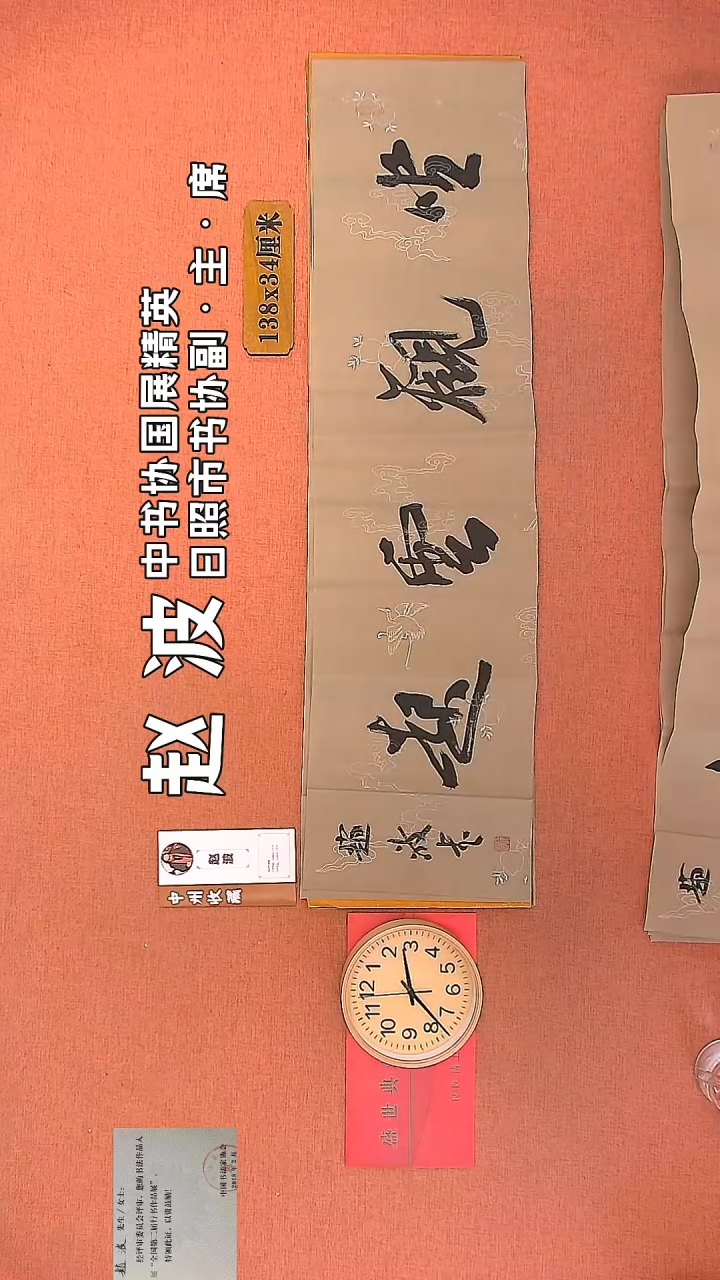 赵波
中书协国展精英
日照市书协副·主·席
138x34厘米
坐觀雲起
趙波书
赵波
中州收藏
12
1
2
3
4
5
6
7
8
9
10
11
盛世典
赵 波 先生/女士:
经评审委员会评审,您的书法作品入
展“全国第二届行书作品展”。
特颁此证,以资鼓励!
中国书法家协会
趙